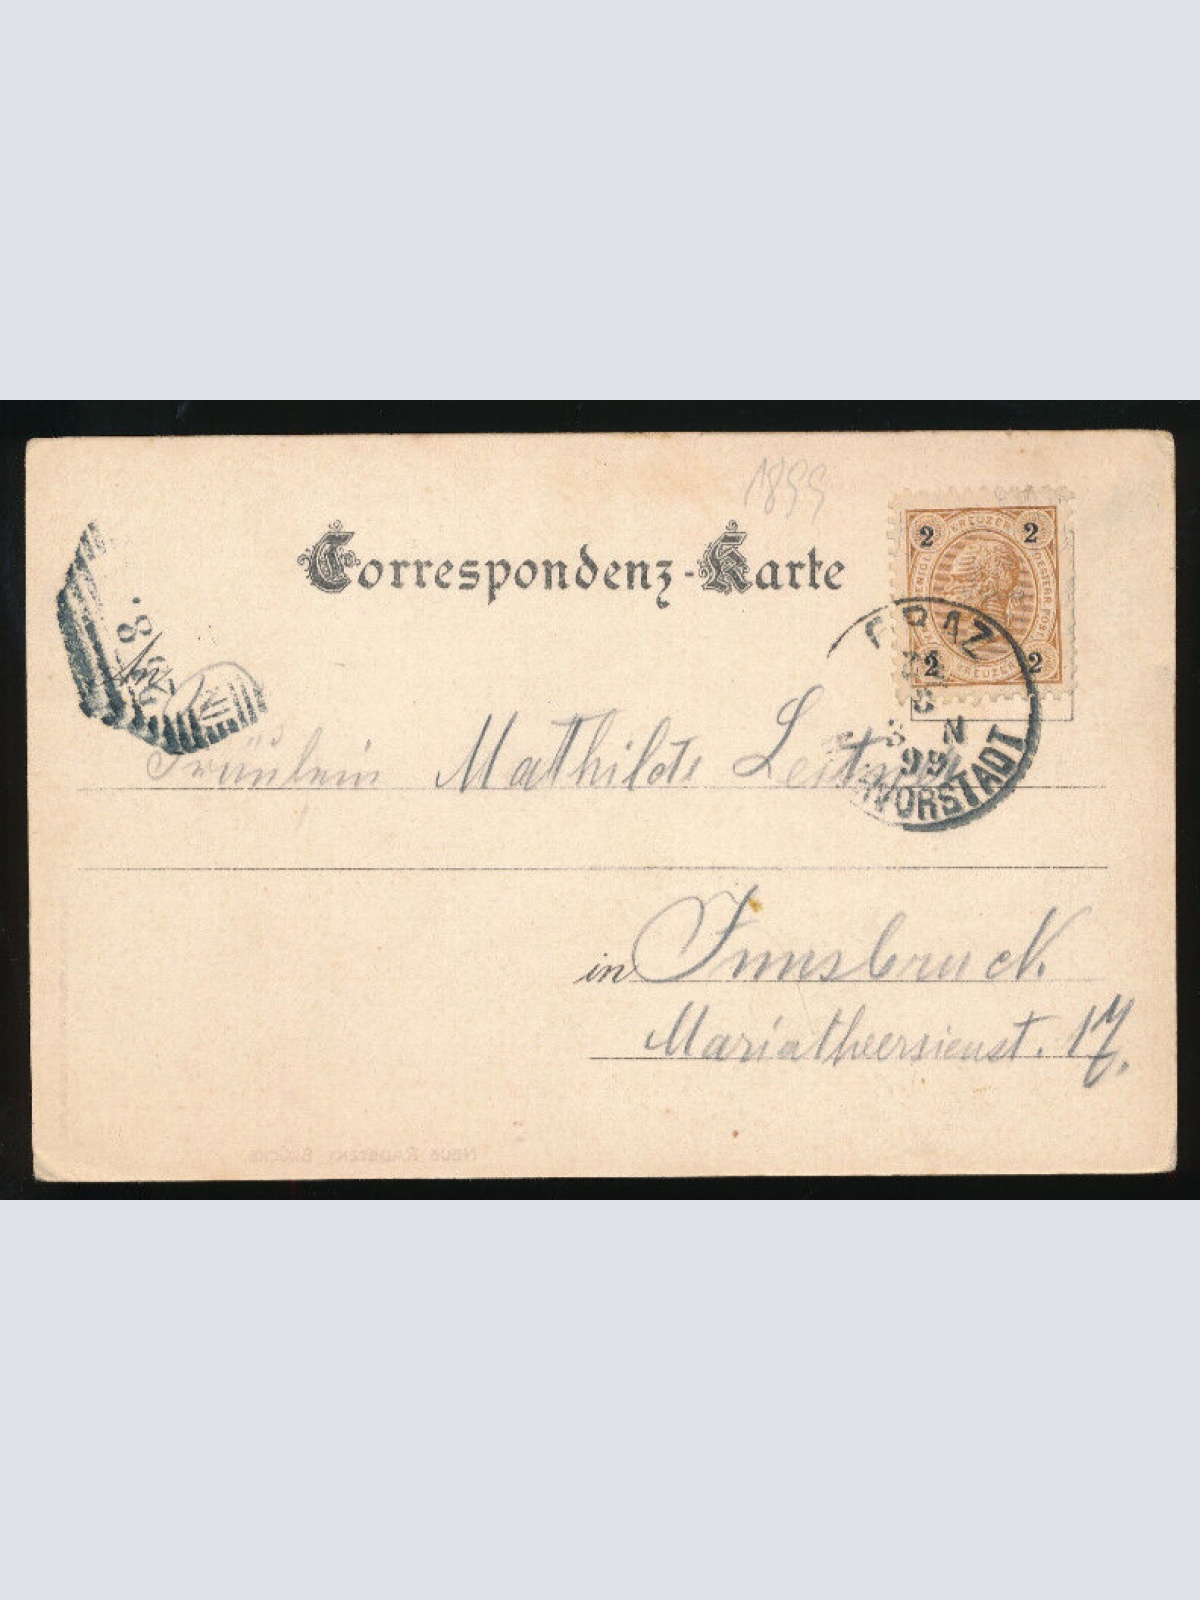 1899
Correspondenz-Karte
2 KREUZER 2
2 KREUZER 2
GRAZ
N
99
VORSTADT
8.
Fräulein Mathilde Leitner
in Innsbruck
Mariatheersienst. 17.
NEUE RADETZKY BRÜCKE.